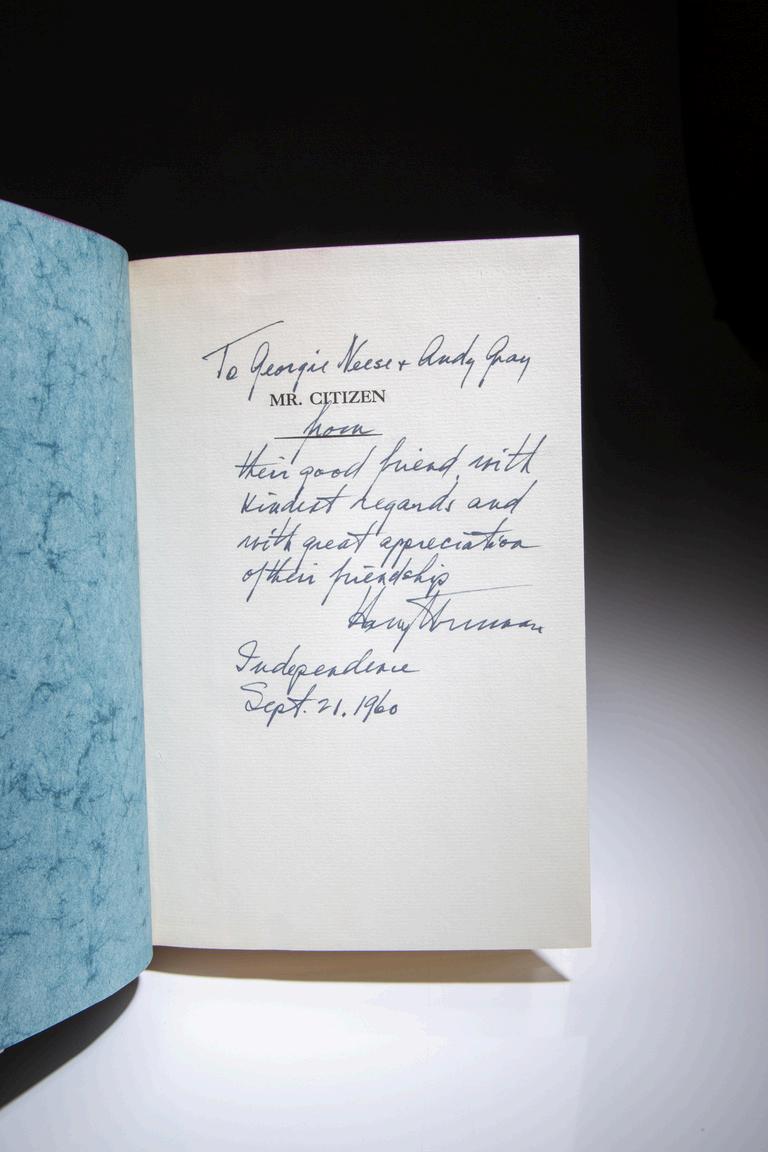 To Georgie Neese + Andy Gray
MR. CITIZEN
from
their good friend, with
kindest regards and
with great appreciation
of their friendship
Harry Truman
Independence
Sept. 21. 1960